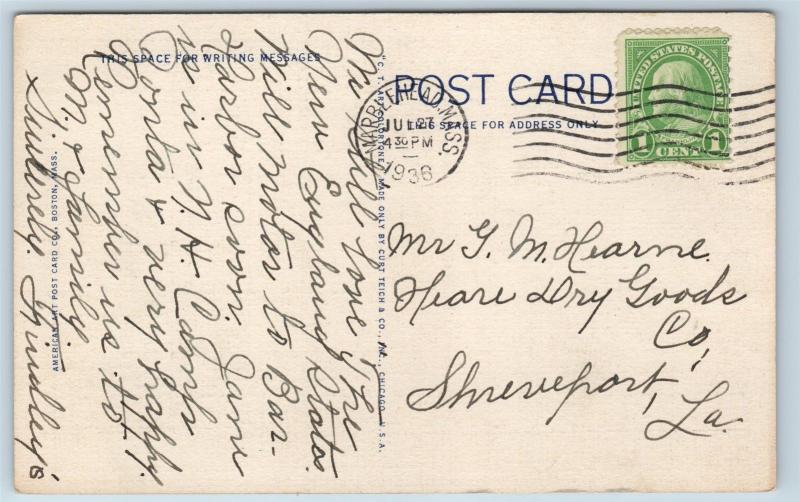 THIS SPACE FOR WRITING MESSAGES
We still love the
New England States.
Will motor to Bar-
Harbor soon. Jane
is in N.H. Camp
Conta & very happy.
Remember us to
M. & family.
Sincerely, Grindley's
AMERICAN ART POST CARD CO., BOSTON, MASS.
"C. T. ART-COLORTONE" MADE ONLY BY CURT TEICH & CO., INC., CHICAGO, U.S.A.
POST CARD
THIS SPACE FOR ADDRESS ONLY
MARBLEHEAD, MASS.
JUL 27
4 30 PM
1936
UNITED STATES POSTAGE
1 CENT 1
Mr G. M. Hearne
Heare Dry Goods
Co,
Shreveport,
La.